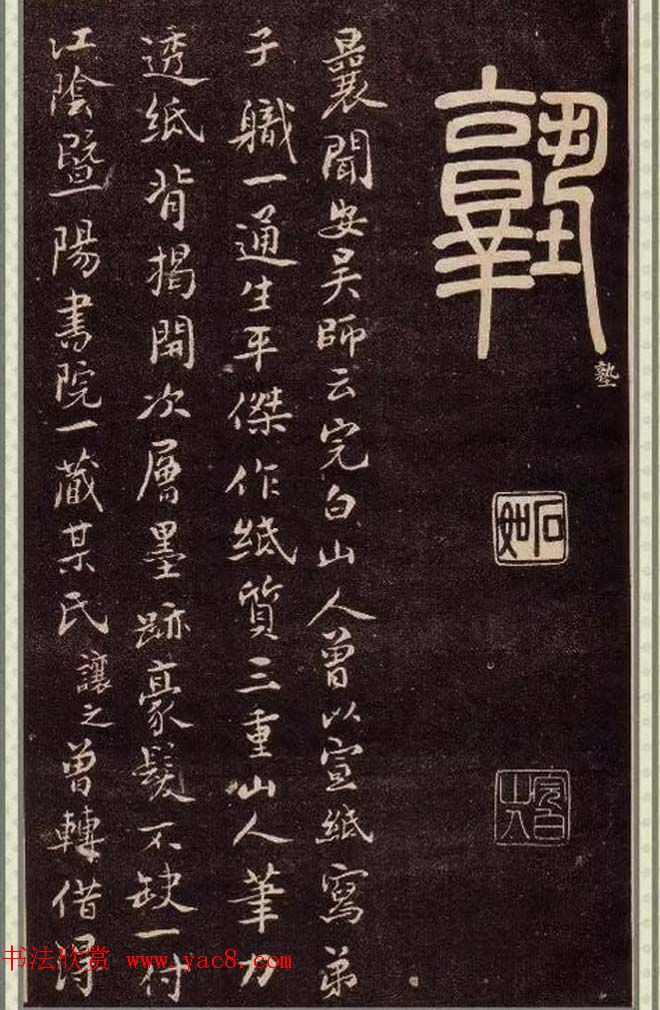 塾
塾
石如
完白山人
曩聞安吴師云完白山人曾以宣紙寫弟
子職一通生平傑作紙質三重山人筆力
透紙背揭開次層墨跡豪髮不缺一付
江陰暨陽書院一藏某氏讓之曾轉借得
书法欣赏 www.yac8.com